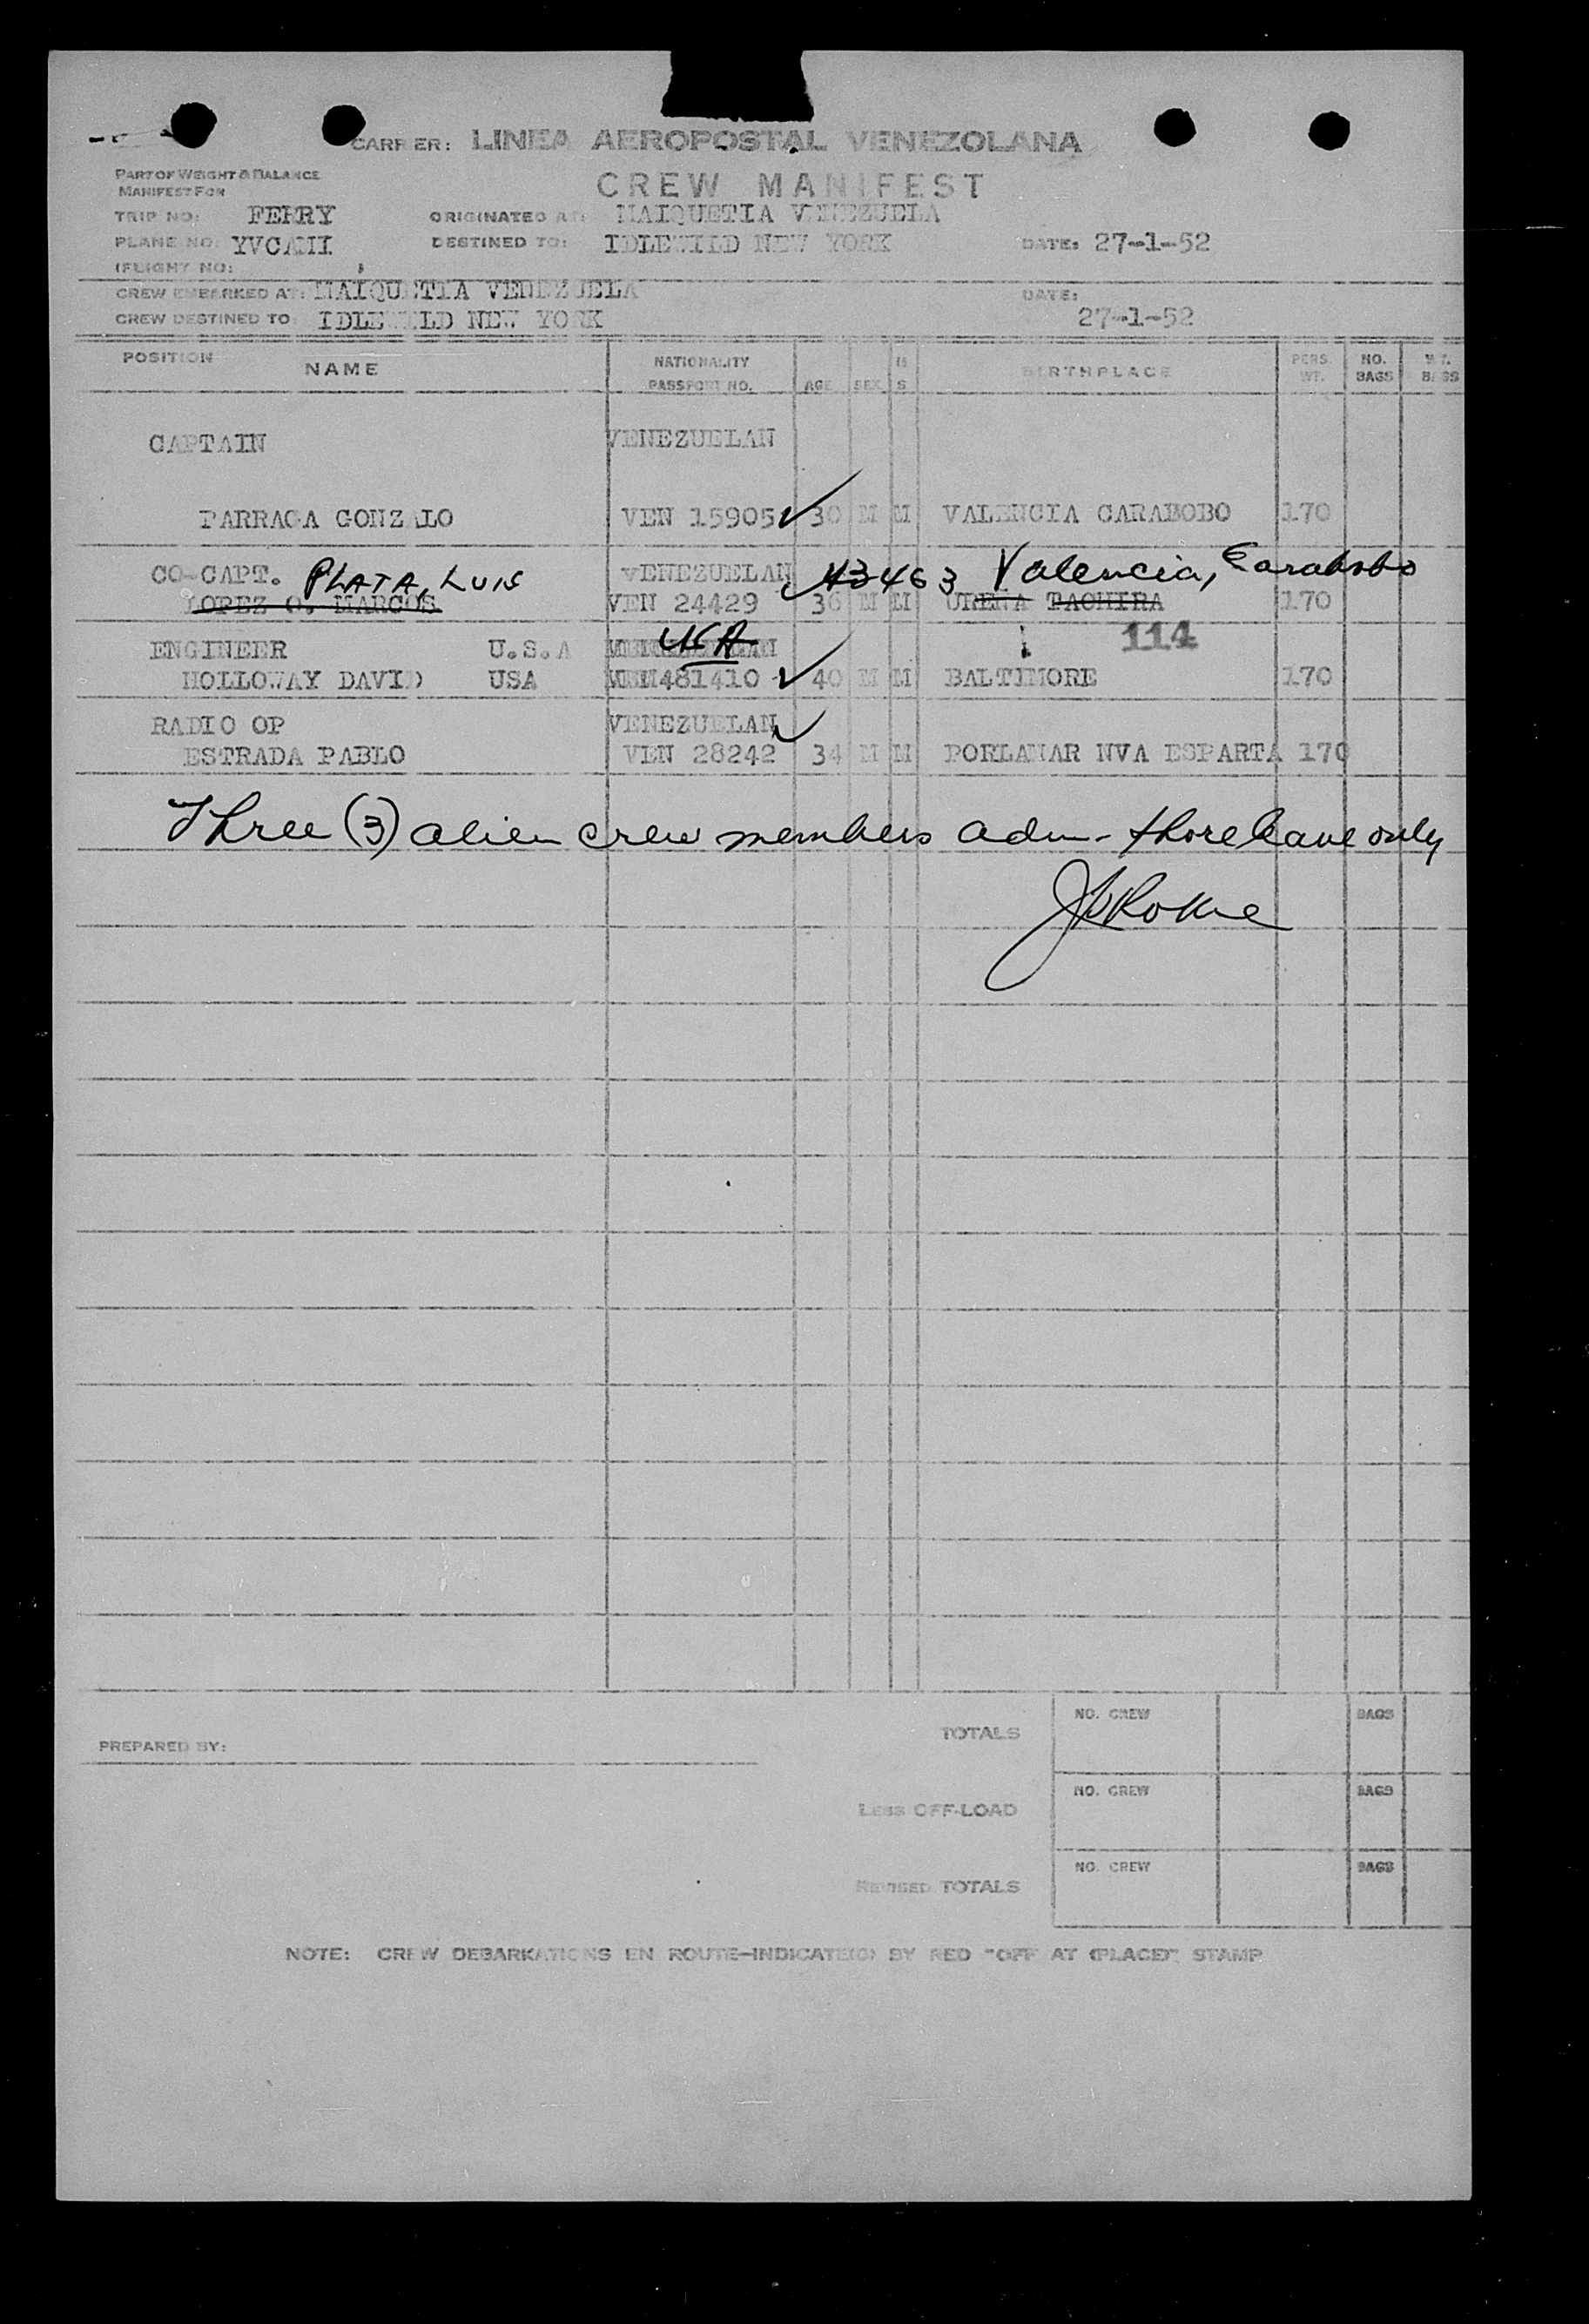 CARRIER: LINEA AEROPOSTAL VENEZOLANA
PART OF WEIGHT & BALANCE
MANIFEST FOR
CREW MANIFEST
TRIP NO: FERRY ORIGINATED AT: MAIQUETIA VENEZUELA
PLANE NO: DESTINED TO: IDLEWILD NEW YORK DATE: 27-1-52
(FLIGHT NO:
CREW EMBARKED AT: MAIQUETIA VENEZUELA DATE:
CREW DESTINED TO: IDLEWILD NEW YORK 27-1-52
POSITION NAME NATIONALITY PASSPORT NO. AGE SEX S BIRTHPLACE PERS. WT. NO. BAGS WT. BAGS
CAPTAIN VENEZUELAN
PARRAGA GONZALO VEN 15905 30 M M VALENCIA CARABOBO 170
CO-CAPT. PLATA, LUIS VENEZUELAN 43463 Valencia, Carabobo
LOPEZ O. MARCOS VEN 24429 36 M M URENA TACHIRA 170
114
ENGINEER U.S.A USA
HOLLOWAY DAVID USA 481410 40 M M BALTIMORE 170
RADIO OP VENEZUELAN
ESTRADA PABLO VEN 28242 34 M M PORLAMAR NVA ESPARTA 170
Three (3) alien crew members adm - shore leave only
PREPARED BY:
TOTALS NO. CREW BAGS
LESS OFF-LOAD NO. CREW BAGS
REVISED TOTALS NO. CREW BAGS
NOTE: CREW DEBARKATIONS EN ROUTE-INDICATE(D) BY RED "OFF AT (PLACE)" STAMP